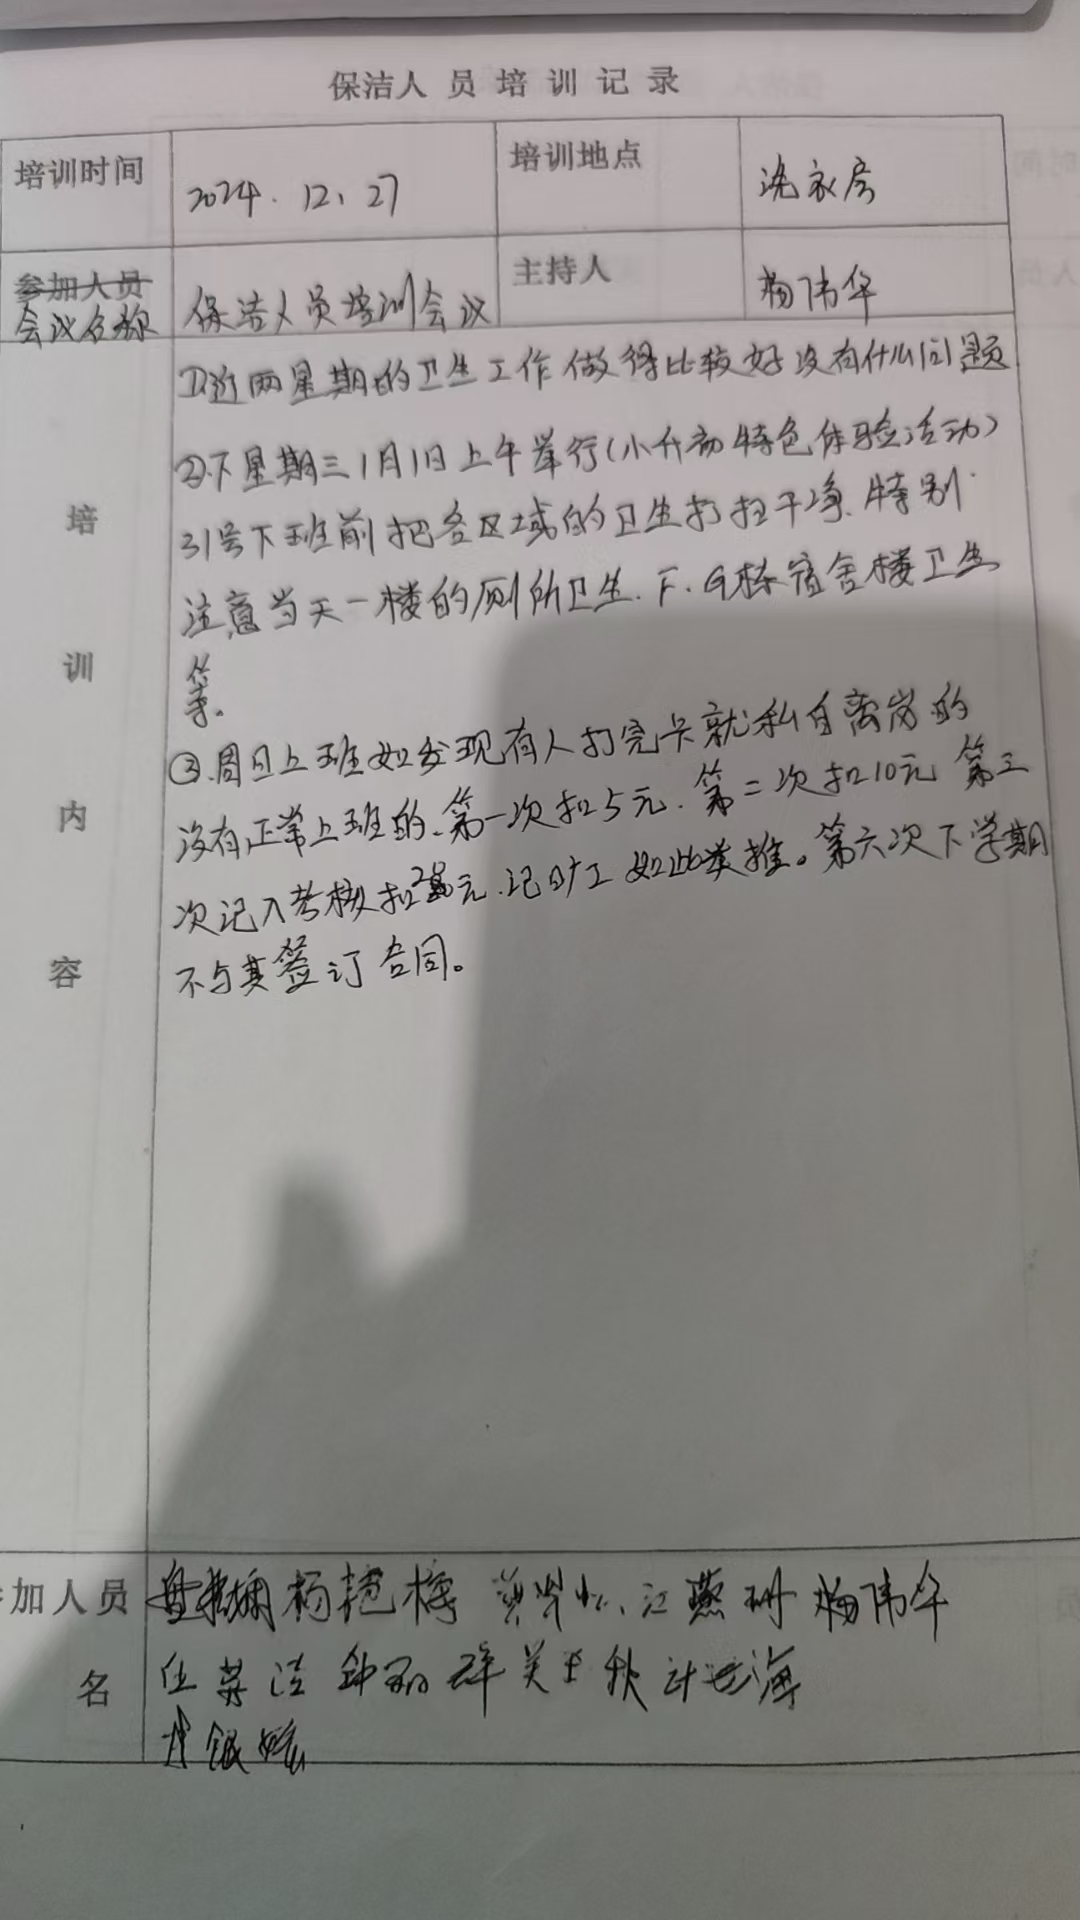 保洁人员培训记录
培训时间 2024.12.27 培训地点 洗衣房
参加人员 会议名称 保洁人员培训会议 主持人 杨伟华
培训内容
①近两星期的卫生工作做得比较好没有什么问题
②下星期三1月1日上午举行(小升初特色体验活动)
31号下班前把各区域的卫生打扫干净.特别
注意当天一楼的厕所卫生.F.G栋宿舍楼卫生
等。
③.周日上班如发现有人打完卡就私自离岗的
没有正常上班的.第一次扣5元.第二次扣10元 第三
次记入考核扣 元.记旷工 如此类推。第六次下学期
不与其签订合同。
加人员 杨艳梅 江燕珊 杨伟华
名 伍英洁 钟丽群 关玉秋 海
银